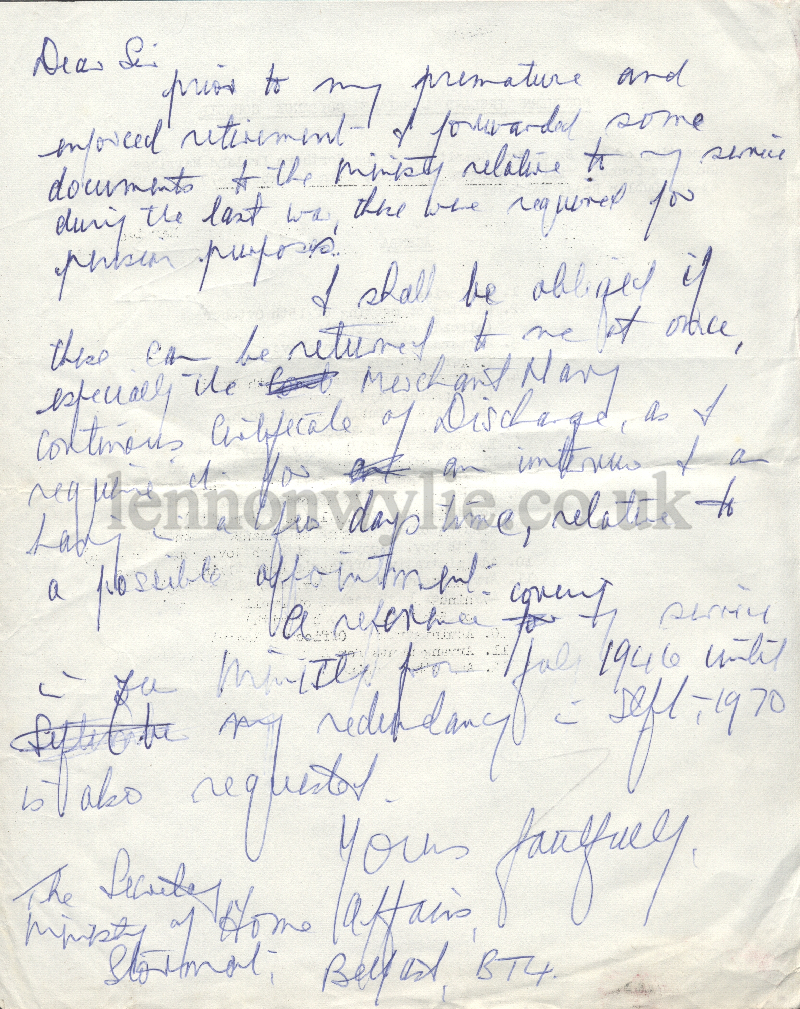 Dear Sir
prior to my premature and
enforced retirement I forwarded some
documents to the Ministry relative to my service
during the last war, these were required for
pension purposes.
I shall be obliged if
these can be returned to me at once,
especially the Merchant Navy
Continous Certificate of Discharge, as I
require it for an interview I am
having in a few days time, relative to
a possible appointment.
A reference covering my service
in your Ministry from July 1946 until
my redundancy in Sept, 1970
is also requested.
Yours faithfully,
The Secretary
Ministry of Home Affairs,
Stormont,
Belfast, BT4.
lennonwylie.co.uk